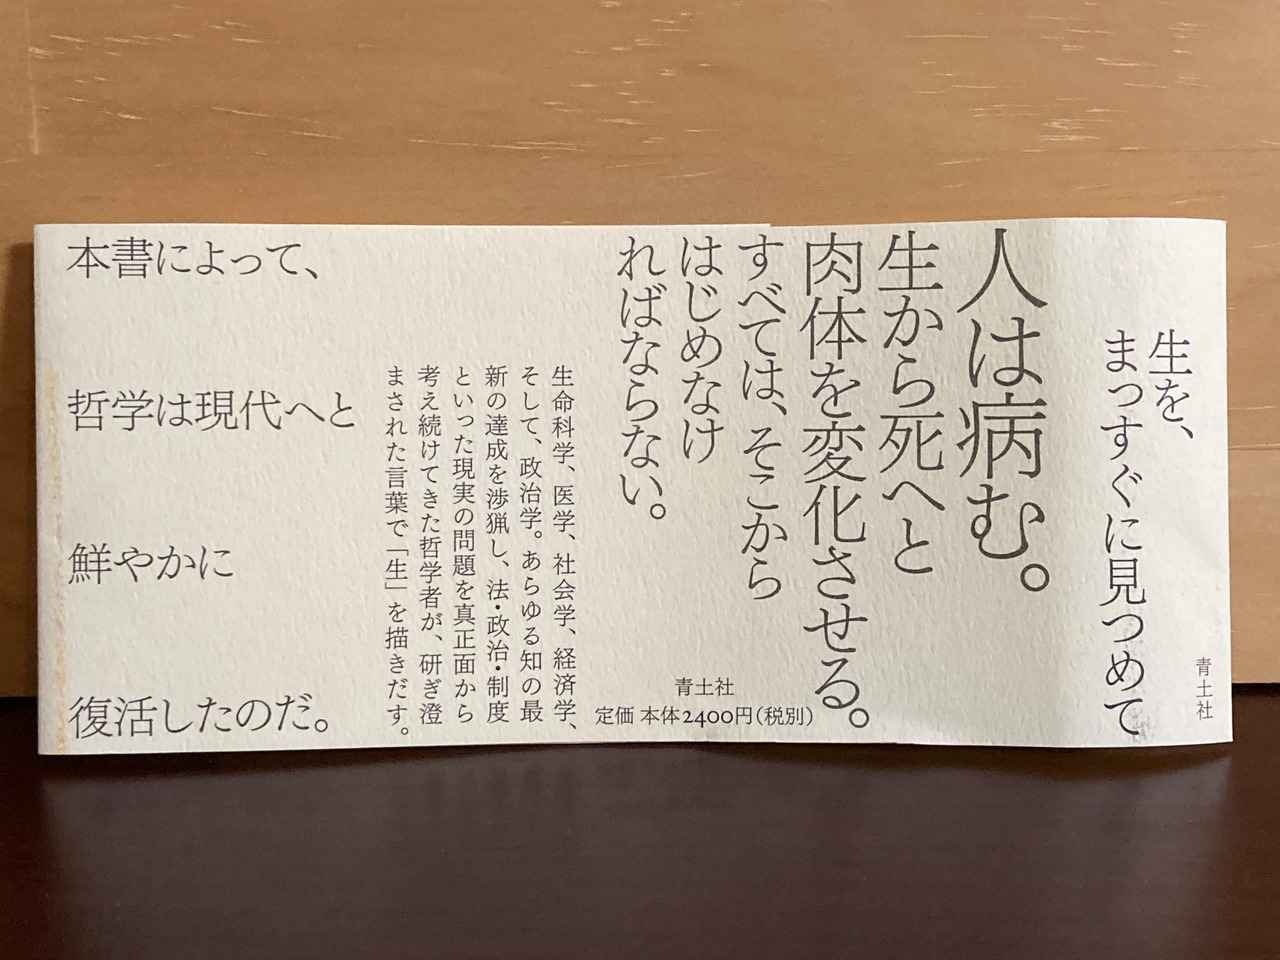 生を、
まっすぐに見つめて
青土社
人は病む。
生から死へと
肉体を変化させる。
すべては、そこから
はじめなけ
ればならない。
青土社
定価 本体2400円(税別)
生命科学、医学、社会学、経済学、
そして、政治学。あらゆる知の最
新の達成を渉猟し、法・政治・制度
といった現実の問題を真正面から
考え続けてきた哲学者が、研ぎ澄
まされた言葉で「生」を描きだす。
本書によって、
哲学は現代へと
鮮やかに
復活したのだ。